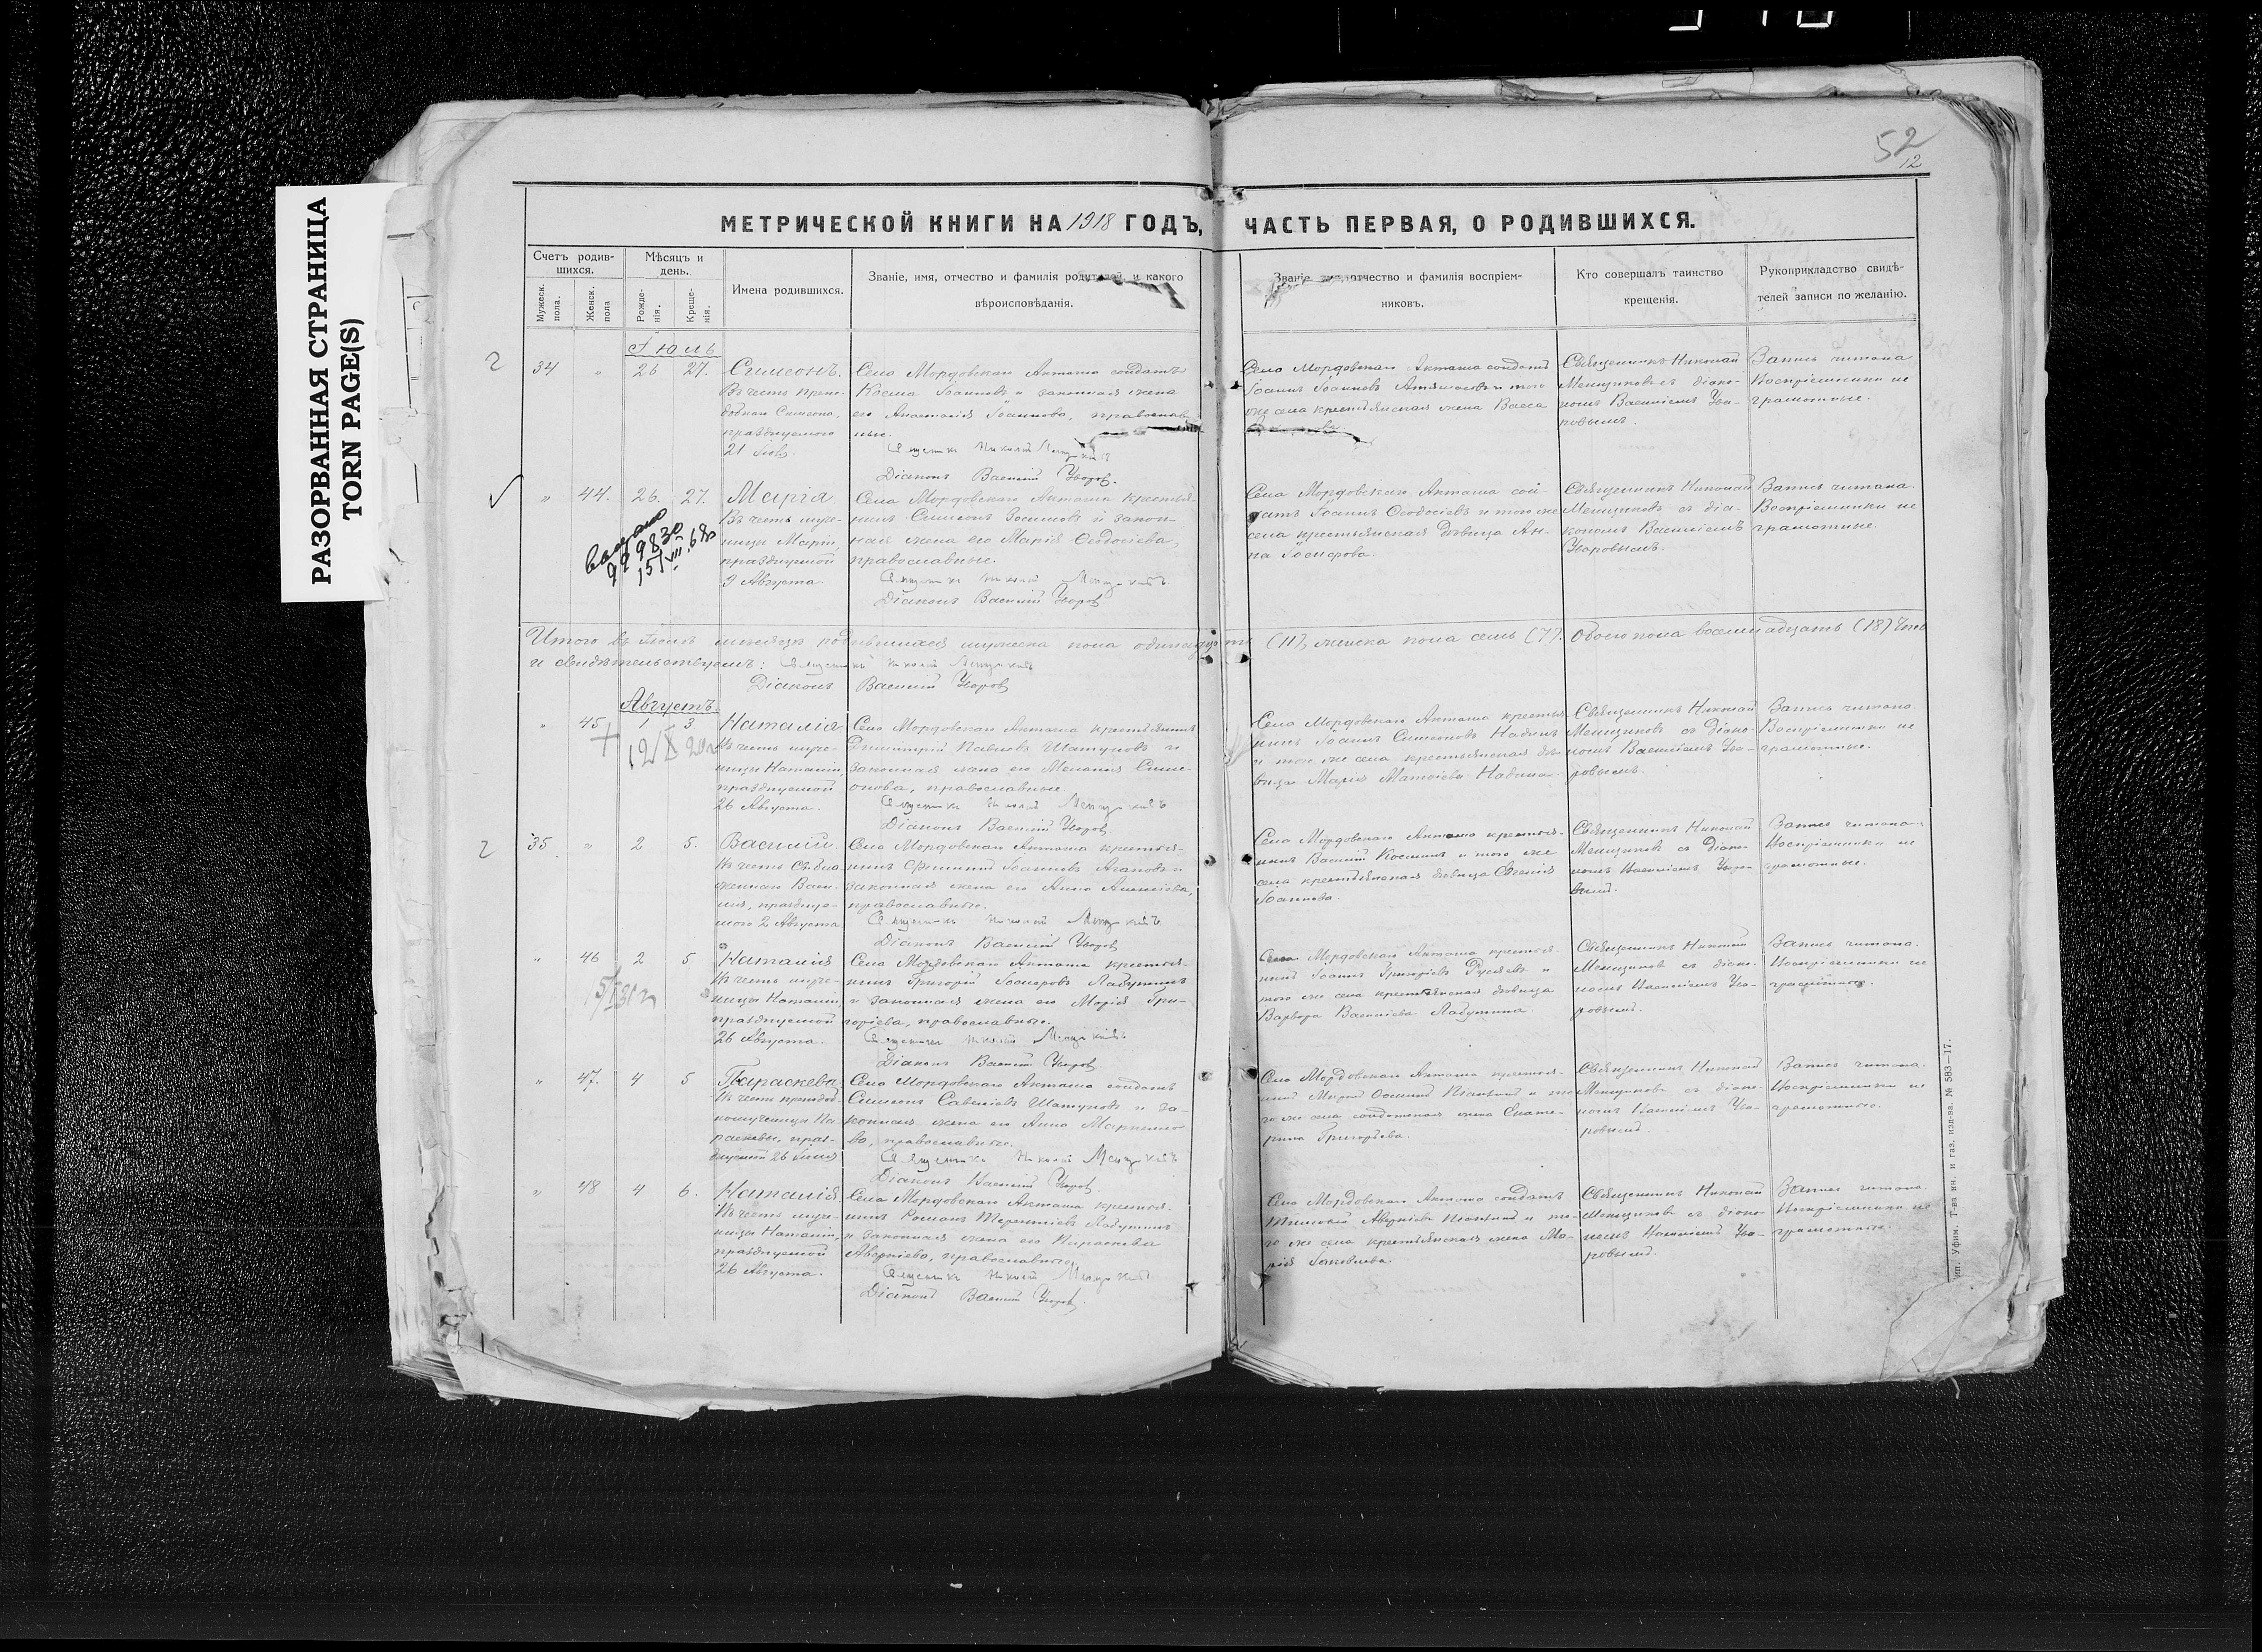 РАЗОРВАННАЯ СТРАНИЦА
TORN PAGE(S)
52
12
МЕТРИЧЕСКОЙ КНИГИ НА 1918 ГОДЪ,
ЧАСТЬ ПЕРВАЯ, О РОДИВШИХСЯ.
Счетъ родив-
шихся.
Мужеск.
пола.
Женск.
пола
Мѣсяцъ и
день.
Рожде-
нія.
Креще-
нія.
Имена родившихся.
Званіе, имя, отчество и фамилія родителей, и какого
вѣроисповѣданія.
Званіе отчество и фамилія воспріем-
никовъ.
Кто совершалъ таинство
крещенія.
Рукоприкладство свидѣ-
телей записи по желанію.
Іюль
34 " 26 27.
Симеонъ.
Въ честь препо-
добнаго Симеона,
празднуемаго
21 Іюля.
Села Мордовскаго Акташа солдатъ
Косма Іоанновъ и законная жена
его Анастасія Іоаннова, православ
ные.
Священникъ Николай
Діаконъ Василій Уваровъ.
Села Мордовскаго Акташа солдатъ
Іоаннъ Іоанновъ и того
же села крестьянская жена Васса
Священникъ Николай
Менщиковъ съ діако-
номъ Василіемъ Ува-
ровымъ.
Запись читана
Воспріемники не
грамотные.
" 44. 26. 27.
Марія
Въ честь муче-
ницы Маріи,
празднуемой
9 Августа.
999830
15/VII.68
Села Мордовскаго Акташа крестья-
нинъ Симеонъ и закон-
ная жена его Марія Ѳеодосіева,
православные.
Священникъ Николай
Діаконъ Василій Уваровъ
Села Мордовскаго Акташа сол-
датъ Іоаннъ Ѳеодосіевъ и того же
села крестьянская дѣвица Ан-
на Іосифова.
Священникъ Николай
Менщиковъ съ діа-
кономъ Василіемъ
Уваровымъ.
Запись читана.
Воспріемники не
грамотные.
Итого въ Іюлѣ мѣсяцѣ родившихся мужеска пола одинадцать (11), женска пола семь (7). Обоего пола восемнадцать (18)
и свидѣтельствуемъ: Священникъ Николай
Діаконъ Василій Уваровъ
Августъ.
" 45 1 3
Наталія
Въ честь муче-
ницы Наталіи,
празднуемой
26 Августа.
Села Мордовскаго Акташа крестьянинъ
Димитрій Павловъ Шатуновъ и
законная жена его Меланія Симе-
онова, православные.
Священникъ Николай
Діаконъ Василій Уваровъ
Села Мордовскаго Акташа крестья-
нинъ Іоаннъ Симеоновъ Надинъ
и того же села крестьянская дѣ-
вица Марія Матѳіева Надина.
Священникъ Николай
Менщиковъ съ діако-
номъ Василіемъ Ува-
ровымъ.
Запись читана
Воспріемники не
грамотные.
35 " 2 5.
Василій.
Въ честь
Васи-
лія, праздну-
маго 2 Августа
Села Мордовскаго Акташа крестья-
нинъ Іоанновъ Агаповъ и
законная жена его Анна Алексіева,
православные.
Священникъ Николай
Діаконъ Василій Уваровъ
Села Мордовскаго Акташа крестья-
нинъ Василій Косминъ и того же
села крестьянская дѣвица Евгенія
Іоаннова
Священникъ Николай
Менщиковъ съ діако-
номъ Василіемъ Ува-
Запись читана.
Воспріемники не
грамотные.
" 46 2 5
Наталія
Въ честь муче-
ницы Наталіи,
празднуемой
26 Августа.
Села Мордовскаго Акташа крестья-
нинъ Григорій Іосифовъ Лабутинъ
и законная жена его Марія Гри-
горіева, православные.
Священникъ Николай
Діаконъ Василій Уваровъ
Села Мордовскаго Акташа крестья-
нинъ Іоаннъ Григоріевъ и
того же села крестьянская дѣвица
Варвара Василіева Лабутина
Священникъ Николай
Менщиковъ съ діако-
номъ Василіемъ Ува-
ровымъ.
Запись читана.
Воспріемники не
грамотные.
" 47. 4 5
Параскева
Въ честь преподоб-
номученицы Па-
раскевы, праз-
днуемой 26 Іюля
Села Мордовскаго Акташа солдатъ
Симеонъ Савеліевъ Шатуновъ и за-
конная жена его Анна
ва, православные.
Священникъ Николай
Діаконъ Василій Уваровъ
Села Мордовскаго Акташа крестья-
нинъ и то-
го же села солдатская жена Екате-
рина Григорьева.
Священникъ Николай
Менщиковъ съ діако-
номъ Василіемъ Ува-
ровымъ.
Запись читана.
Воспріемники не
грамотные.
" 48 4 6.
Наталія
Въ честь муче-
ницы Наталіи,
празднуемой
26 Августа.
Села Мордовскаго Акташа крестья-
нинъ Романъ Терентіевъ Лабутинъ
и законная жена его Параскева
Аверкіева, православные.
Священникъ Николай
Діаконъ Василій Уваровъ.
Села Мордовскаго Акташа солдатъ
Тимоѳей Аверкіевъ и то-
го же села крестьянская жена Ма-
рія Яковлева.
Священникъ Николай
Менщиковъ съ діако-
номъ Василіемъ Ува-
ровымъ.
Запись читана.
Воспріемники не
грамотные.
тип. Уфим. Т-ва кн. и газ. изд-ва. № 583—17.